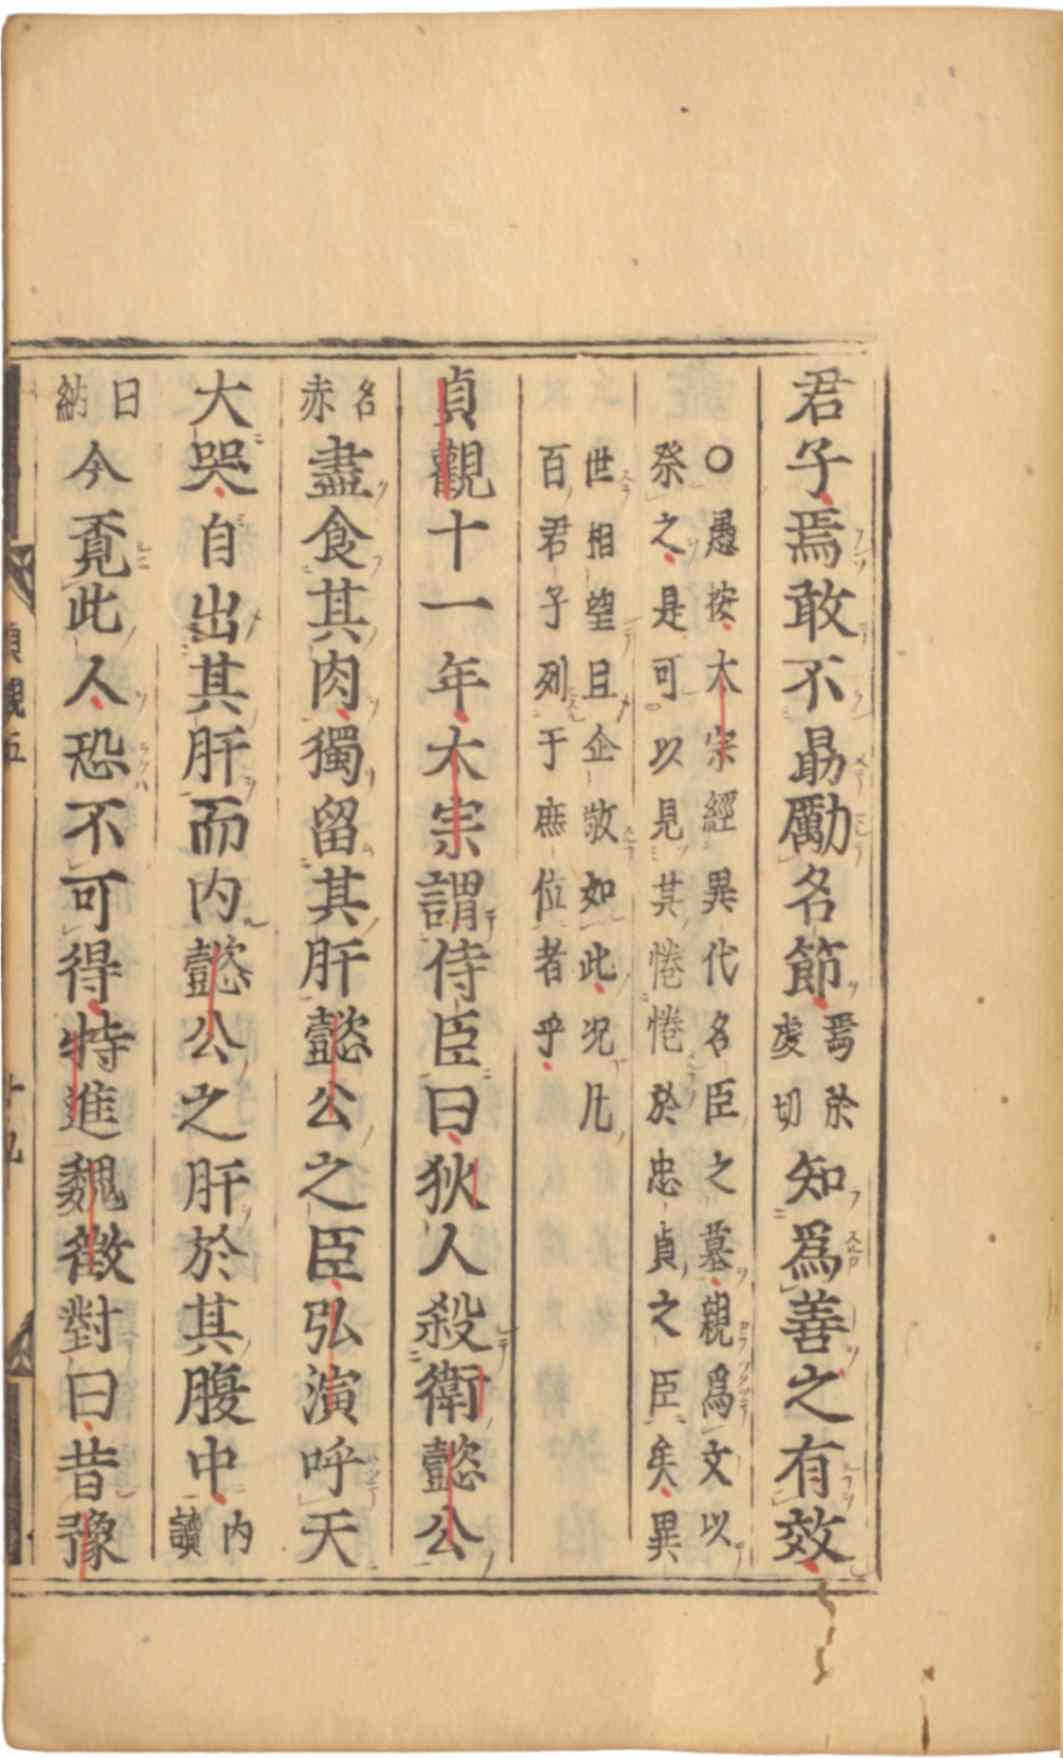 君子焉敢不勗勵名節焉於虔切知爲善之有效
○愚按太宗經異代名臣之墓親爲文以
祭之是可以見其惓惓於忠貞之臣矣異
世相望且企敬如此况凢
百君子列于庶位者乎
貞觀十一年太宗謂侍臣曰狄人殺衛懿公
盡食其肉獨留其肝懿公之臣弘演呼天
名赤
大哭自出其肝而内懿公之肝於其腹中内讀
曰納
今覔此人恐不可得特進魏徵對曰昔豫
貞觀五
十九